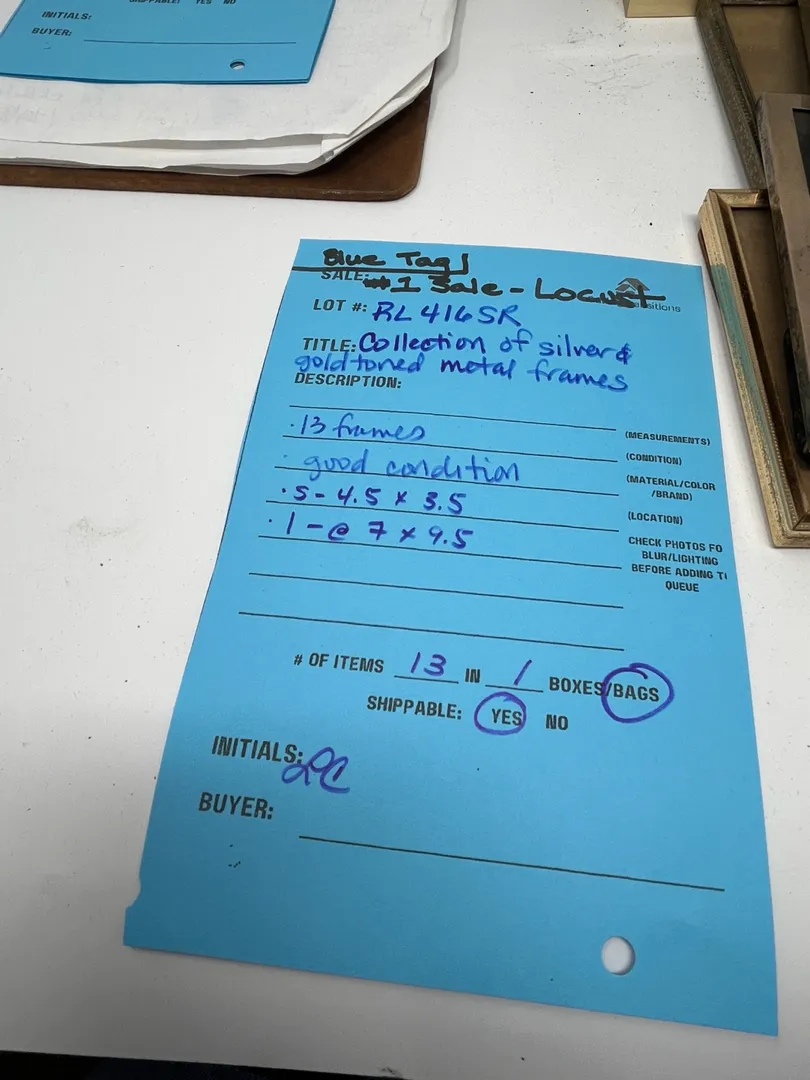 SHIPPABLE: YES NO
INITIALS:
BUYER:
Blue Tag
SALE: #1 Sale - Locust
LOT #: RL416SR
TITLE: Collection of silver &
gold toned metal frames
DESCRIPTION:
(MEASUREMENTS)
· 13 frames
(CONDITION)
· good condition
(MATERIAL/COLOR
/BRAND)
· S - 4.5 x 3.5
(LOCATION)
· 1 - @ 7 x 9.5
CHECK PHOTOS FO
BLUR/LIGHTING
BEFORE ADDING T
QUEUE
# OF ITEMS 13 IN 1 BOXES/BAGS
SHIPPABLE: YES NO
INITIALS:
BUYER: